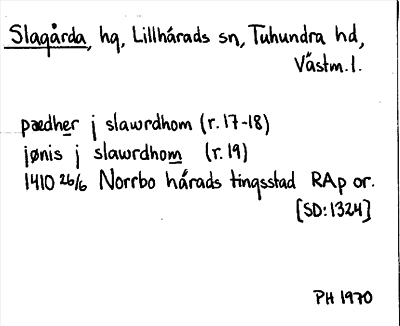 Slagårda, hg, Lillhärads sn, Tuhundra hd,
Västm. l.
pædher j slawrdhom (r. 17-18)
jønis j slawrdhom (r. 19)
1410 26/6 Norrbo härads tingsstad RAp or.
[SD: 1324]
PH 1970